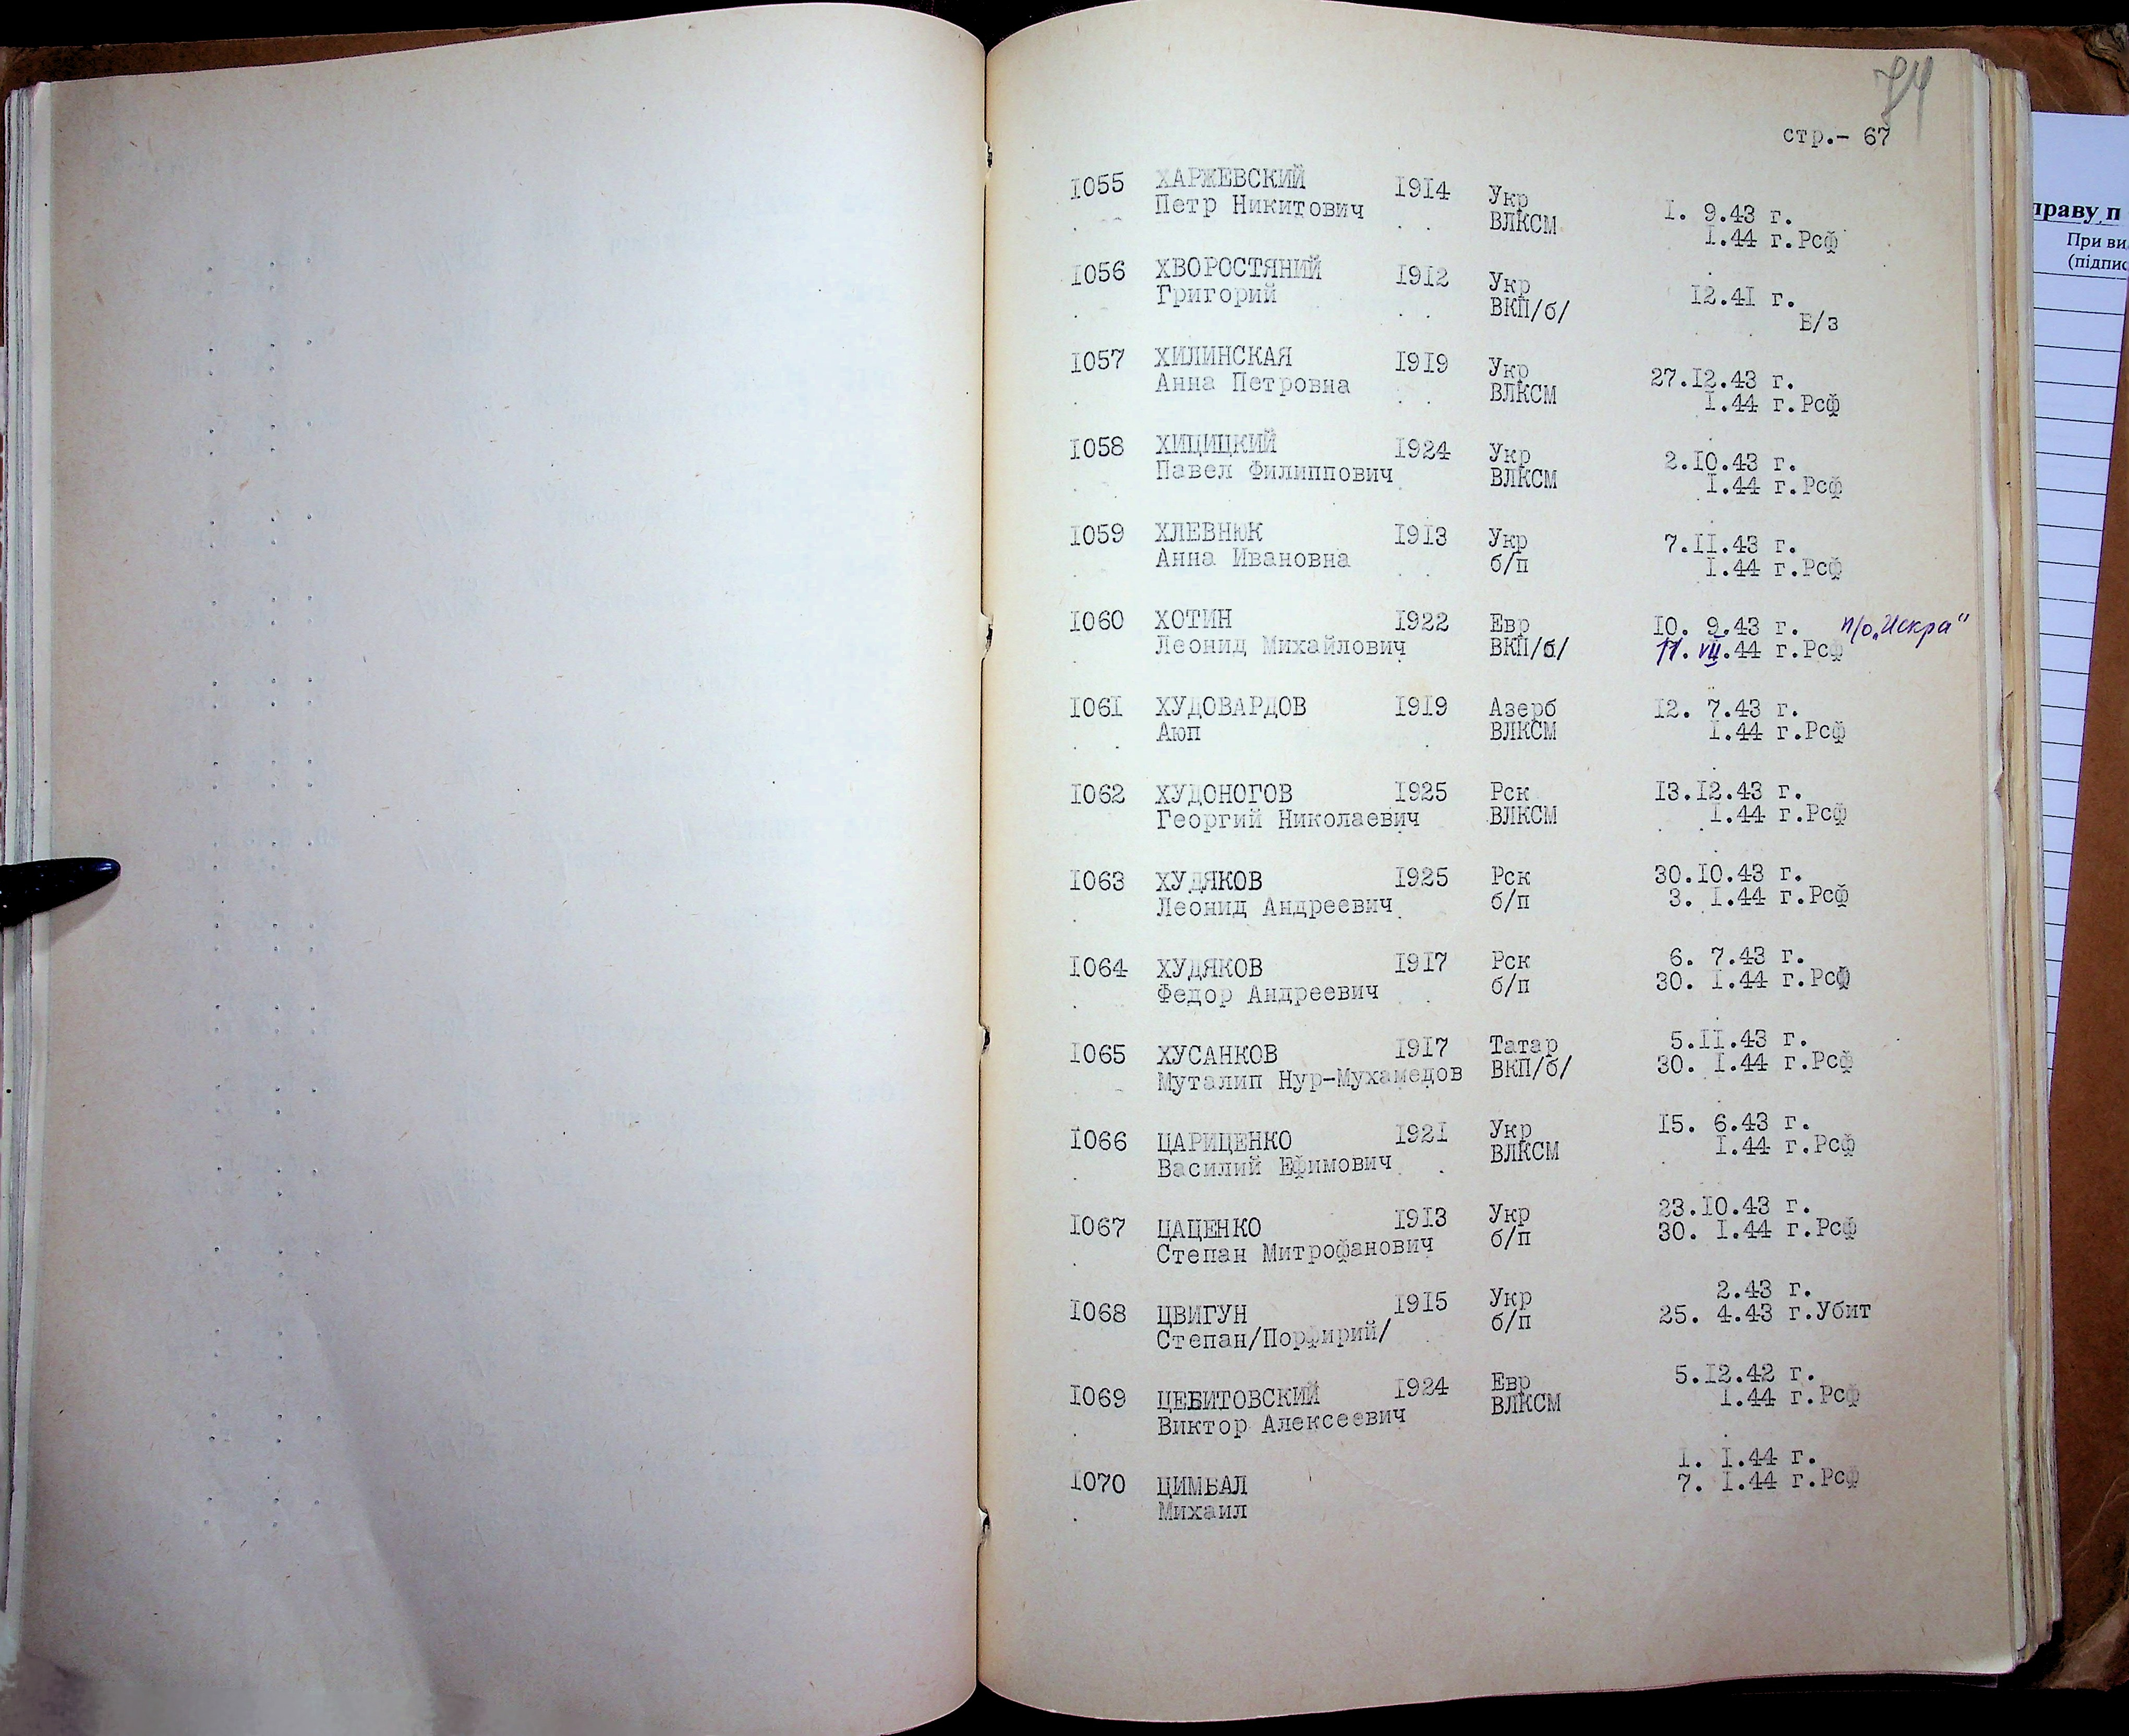 74
стр.- 67
1055 ХАРЖЕВСКИЙ 1914 Укр I. 9.43 г.
Петр Никитович ВЛКСМ I.44 г.Рсф
1056 ХВОРОСТЯНИЙ 1912 Укр I2.4I г.
Григорий ВКП/б/ Б/з
1057 ХИЛИНСКАЯ 1919 Укр 27.I2.43 г.
Анна Петровна ВЛКСМ I.44 г.Рсф
1058 ХИЦИЦКИЙ 1924 Укр 2.I0.43 г.
Павел Филиппович ВЛКСМ I.44 г.Рсф
1059 ХЛЕВНЮК 1913 Укр 7.II.43 г.
Анна Ивановна б/п I.44 г.Рсф
1060 ХОТИН 1922 Евр I0. 9.43 г. п/о „Искра"
Леонид Михайлович ВКП/б/ 11. VII.44 г.Рсф
1061 ХУДОВАРДОВ 1919 Азерб I2. 7.43 г.
Аюп ВЛКСМ I.44 г.Рсф
1062 ХУДОНОГОВ 1925 Рск I3.I2.43 г.
Георгий Николаевич ВЛКСМ I.44 г.Рсф
1063 ХУДЯКОВ 1925 Рск 30.I0.43 г.
Леонид Андреевич б/п 3. I.44 г.Рсф
1064 ХУДЯКОВ 1917 Рск 6. 7.43 г.
Федор Андреевич б/п 30. I.44 г.Рсф
1065 ХУСАНКОВ 1917 Татар 5.II.43 г.
Муталип Нур-Мухамедов ВКП/б/ 30. I.44 г.Рсф
1066 ЦАРИЦЕНКО 1921 Укр I5. 6.43 г.
Василий Ефимович ВЛКСМ I.44 г.Рсф
1067 ЦАЦЕНКО 1913 Укр 23.I0.43 г.
Степан Митрофанович б/п 30. I.44 г.Рсф
1068 ЦВИГУН 1915 Укр 2.43 г.
Степан/Порфирий/ б/п 25. 4.43 г.Убит
1069 ЦЕБИТОВСКИЙ 1924 Евр 5.I2.42 г.
Виктор Алексеевич ВЛКСМ I.44 г.Рсф
1070 ЦИМБАЛ I. I.44 г.
Михаил 7. I.44 г.Рсф
праву п
При ви
(підпис